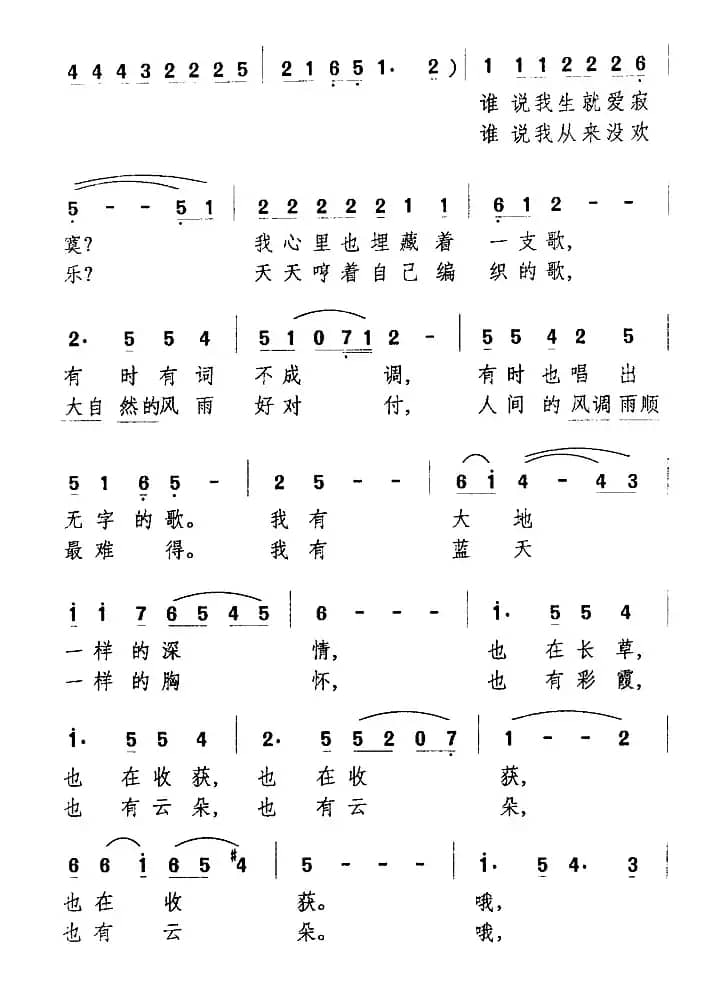 4 4 4 3 2 2 2 5 | 2 1 6 5 1· 2 ) | 1 1 1 2 2 2 6 |
谁 说我生就爱寂
谁 说我从来没欢
5 - - 5 1 | 2 2 2 2 2 2 1 1 | 6 1 2 - - |
寞? 我心里也埋藏着 一支歌,
乐? 天天哼着自己编 织的歌,
2· 5 5 4 | 5 1 0 7 1 2 - | 5 5 4 2 5 |
有 时有词 不成 调, 有时也唱出
大自然的风雨 好对 付, 人间的风调雨顺
5 1 6 5 - | 2 5 - - | 6 i 4 - 4 3 |
无字的歌。 我有 大地
最难 得。 我有 蓝天
i i 7 6 5 4 5 | 6 - - - | i· 5 5 4 |
一样的深 情, 也 在长草,
一样的胸 怀, 也 有彩霞,
i· 5 5 4 | 2· 5 5 2 0 7 | 1 - - 2 |
也 在收获, 也 在收 获,
也 有云朵, 也 有云 朵,
6 6 i 6 5 #4 | 5 - - - | i· 5 4· 3 |
也在 收 获。 哦,
也有 云 朵。 哦,